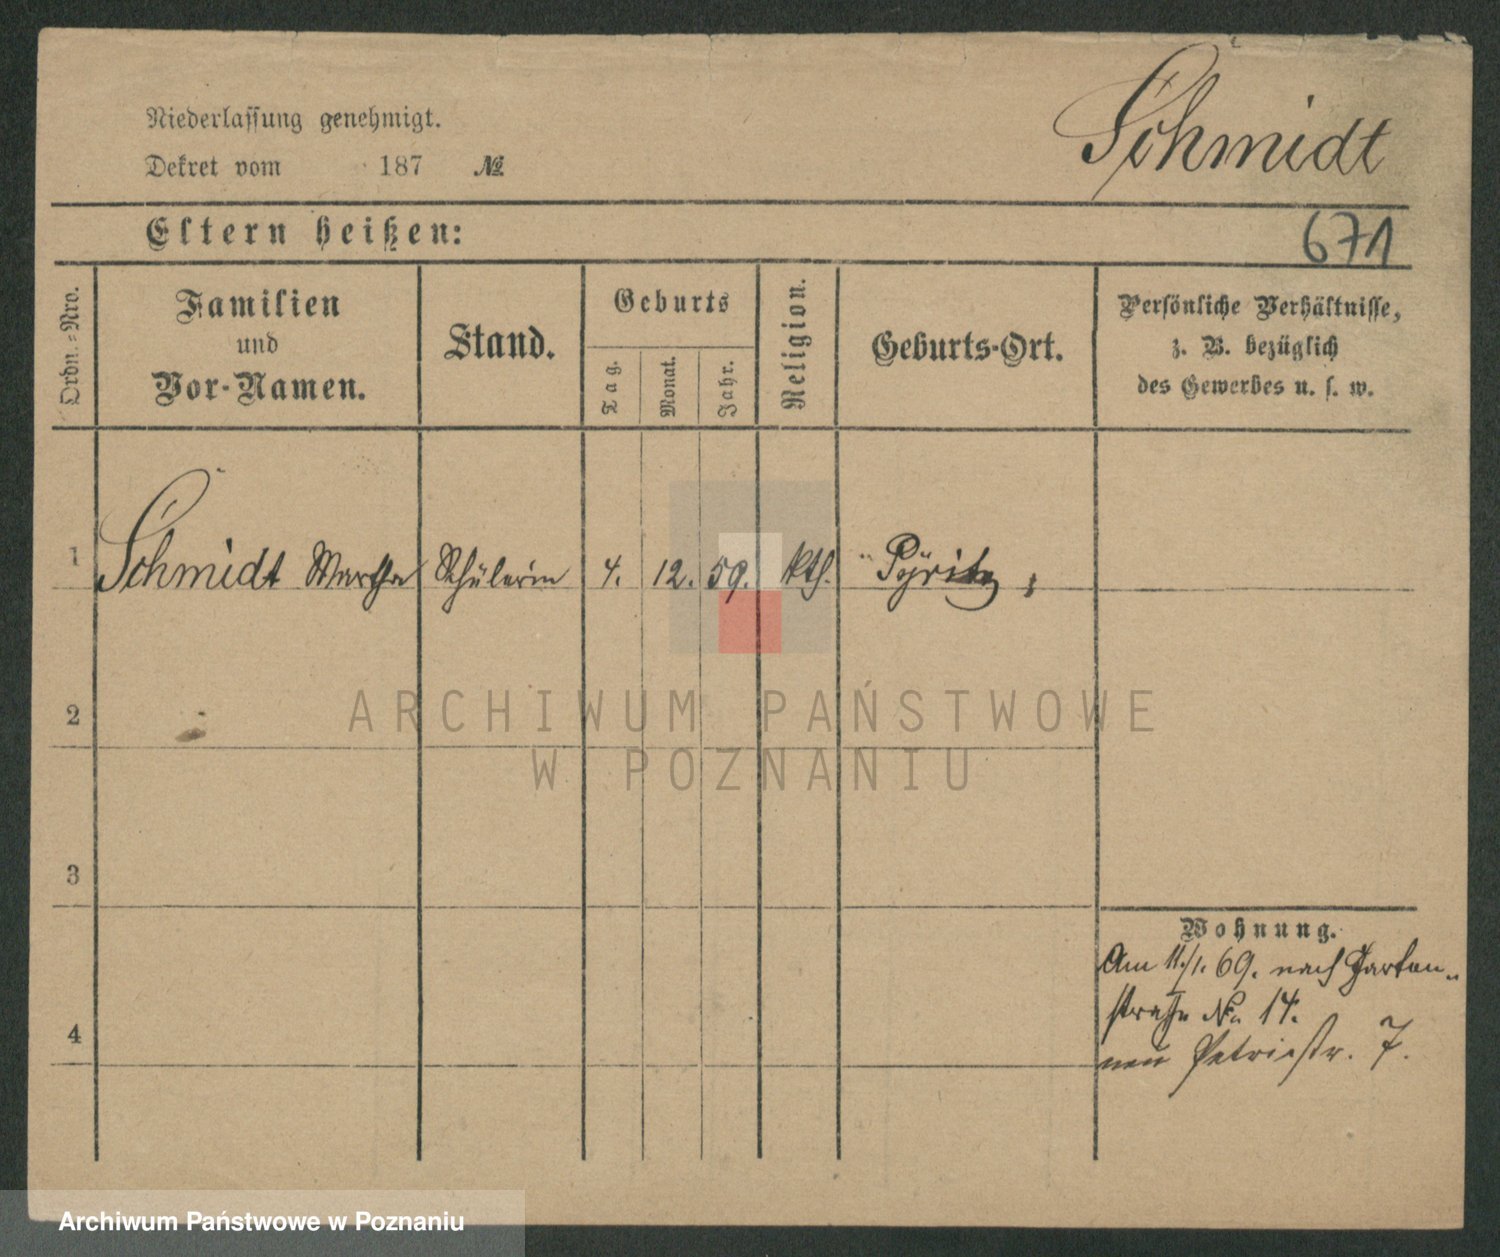 Schmidt
Niederlassung genehmigt.
Dekret vom 187 №
Eltern heißen:
671
Ordn.-Nro.
Familien
und
Vor-Namen.
Stand.
Geburts
Tag.
Monat.
Jahr.
Religion.
Geburts-Ort.
Persönliche Verhältnisse,
z. B. bezüglich
des Gewerbes u. s. w.
1 Schmidt Martha Schülerin 4. 12. 59. kth. Pyritz
2
3
4
Wohnung.
Am 11./1. 69. nach Garten-
straße No. 14.
neu Petristr. 7.
ARCHIWUM PAŃSTWOWE
W POZNANIU
Archiwum Państwowe w Poznaniu